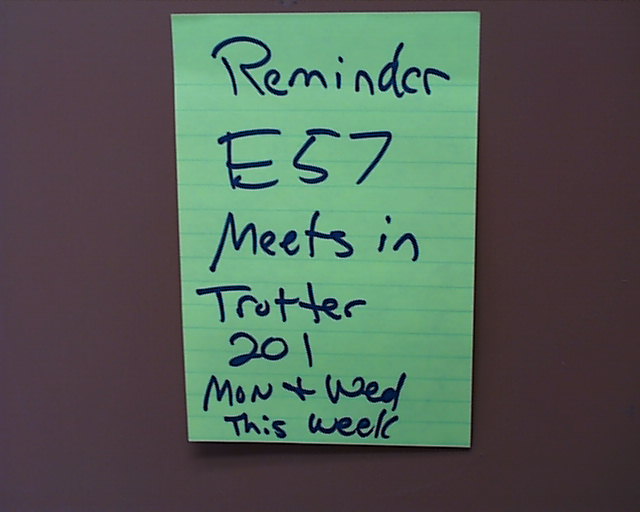 Reminder
E57
Meets in
Trotter
201
Mon + Wed
This week